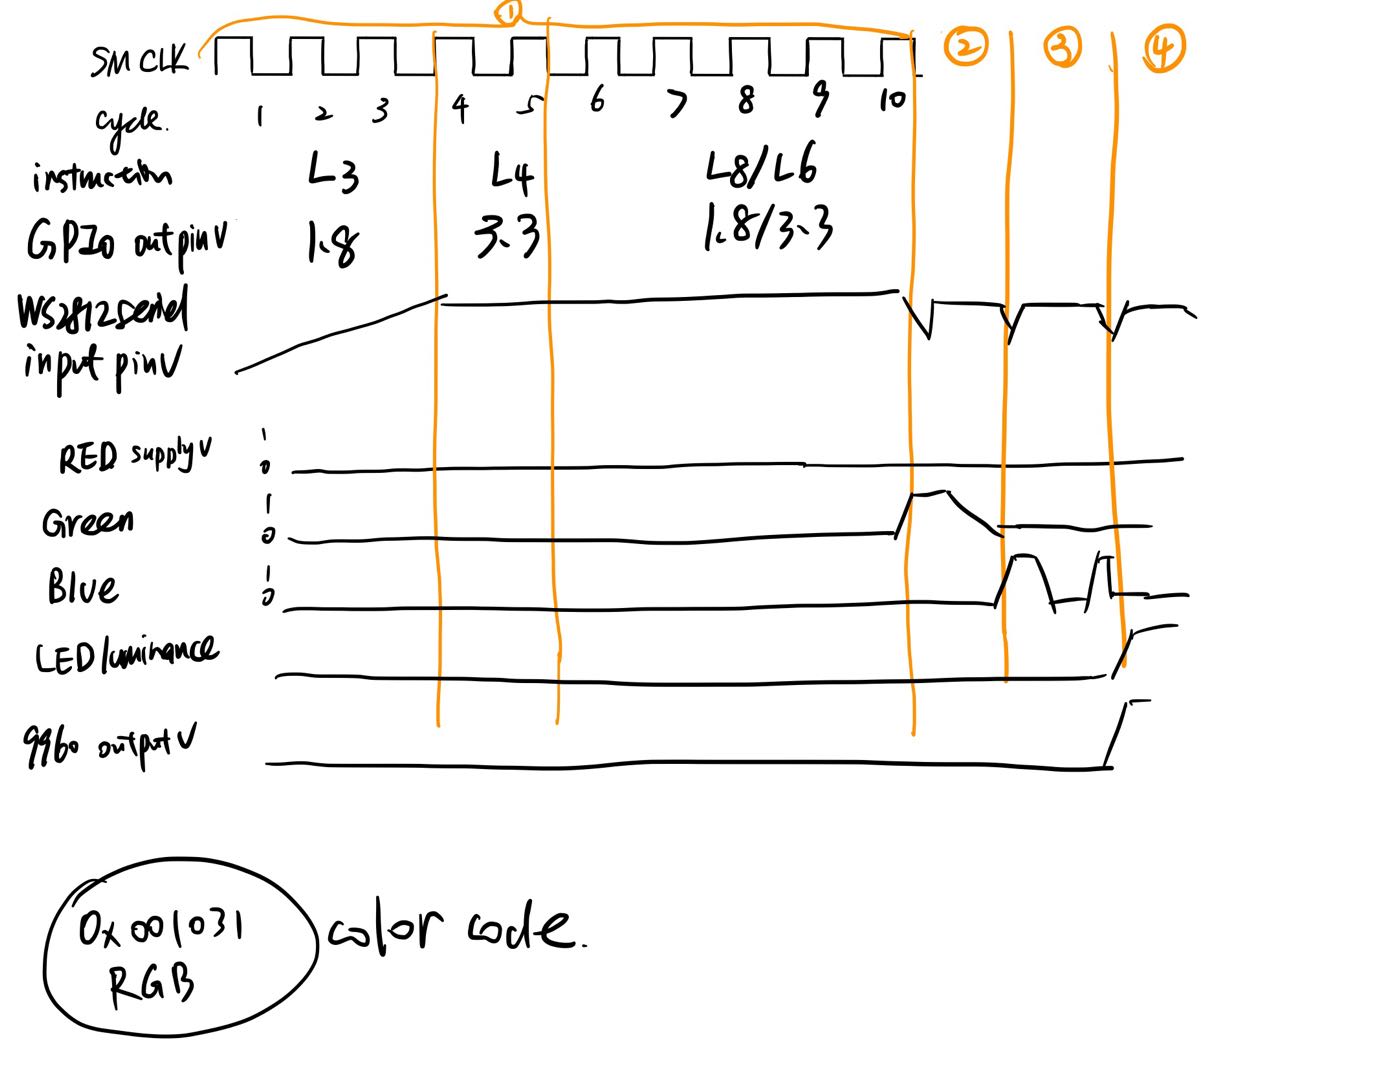 ①
② ③ ④
SM CLK
cycle. 1 2 3 4 5 6 7 8 9 10
instruction L3 L4 L8/L6
GPIO outpin V 1.8 3.3 1.8/3.3
WS2812 serial
input pin V
RED supply V 1 0
Green 1 0
Blue 1 0
LED luminance
9960 output V
0x001031 color code.
RGB